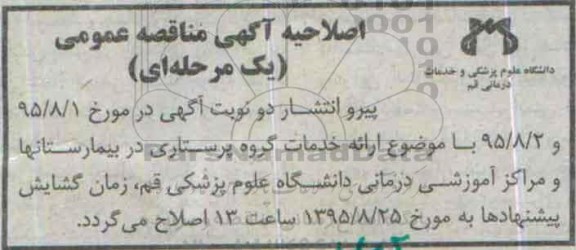 اصلاحیه آگهی مناقصه عمومی
(یک مرحله‌ای)
دانشگاه علوم پزشکی و خدمات
درمانی قم
پیرو انتشار دو نوبت آگهی در مورخ ۹۵/۸/۱
و ۹۵/۸/۲ با موضوع ارائه خدمات گروه پرستاری در بیمارستانها
و مراکز آموزشی درمانی دانشگاه علوم پزشکی قم، زمان گشایش
پیشنهادها به مورخ ۱۳۹۵/۸/۲۵ ساعت ۱۳ اصلاح می‌گردد.